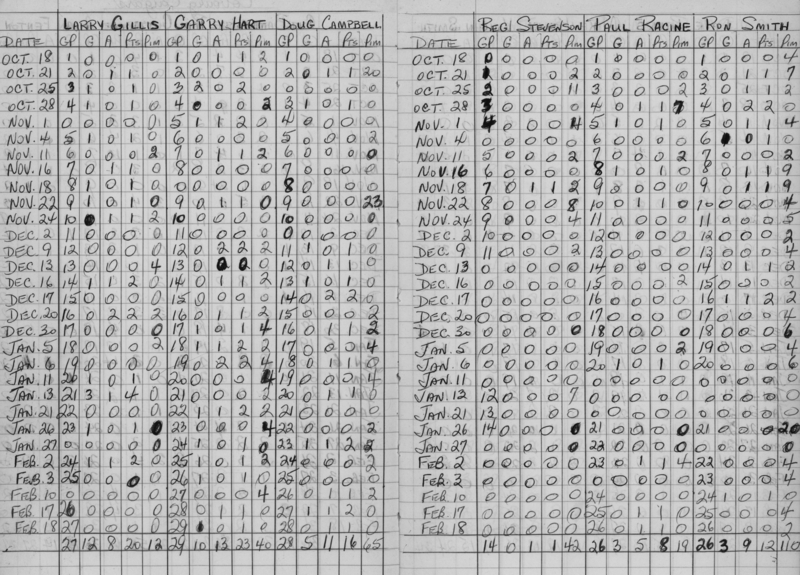 LARRY GILLIS GARRY HART DOUG CAMPBELL
DATE GP G A Pts Pim GP G A Pts Pim GP G A Pts Pim
OCT. 18 1 0 0 0 0 1 0 1 1 2 1 0 0 0 0
OCT. 21 2 0 1 1 0 2 0 0 0 0 2 0 1 1 20
OCT. 25 3 1 0 1 0 3 2 0 2 0 0 0 0 0 0
OCT. 28 4 1 0 1 0 4 0 0 0 2 3 1 0 1 0
NOV. 1 0 0 0 0 0 5 1 1 2 0 4 0 0 0 0
NOV. 4 5 1 0 1 0 6 0 0 0 0 5 0 0 0 2
NOV. 11 6 0 0 0 2 7 0 1 1 2 6 0 0 0 0
NOV. 16 7 0 1 1 0 8 0 0 0 0 7 0 0 0 0
NOV. 18 8 1 0 1 0 0 0 0 0 0 8 0 0 0 0
NOV. 22 9 1 0 1 0 9 0 1 1 0 9 0 0 0 23
NOV. 24 10 0 1 1 2 10 0 0 0 0 10 0 0 0 0
DEC. 2 11 0 0 0 0 11 0 0 0 0 0 0 0 0 0
DEC. 9 12 0 0 0 0 12 0 2 2 2 11 1 0 1 0
DEC. 13 13 0 0 0 4 13 0 0 0 0 12 0 1 1 0
DEC. 16 14 1 1 2 0 14 0 1 1 2 13 1 0 1 0
DEC. 17 15 0 0 0 0 15 0 0 0 0 14 0 2 2 0
DEC. 20 16 0 2 2 2 16 0 1 1 2 15 0 0 0 2
DEC. 30 17 0 0 0 0 17 1 0 1 4 16 0 1 1 2
JAN. 5 18 0 0 0 2 18 1 1 2 2 17 0 0 0 4
JAN. 6 19 0 0 0 0 19 0 2 2 4 18 0 1 1 0
JAN. 11 20 1 0 1 0 20 0 0 0 4 19 0 0 0 4
JAN. 13 21 3 1 4 0 21 0 0 0 0 20 0 1 1 0
JAN. 21 22 0 0 0 0 22 1 1 2 2 21 0 0 0 0
JAN. 26 23 1 0 1 0 23 0 0 0 4 22 0 0 0 2
JAN. 27 0 0 0 0 0 24 1 0 1 0 23 1 1 2 2
FEB. 2 24 1 1 2 0 25 1 0 1 2 24 0 0 0 2
FEB. 3 25 0 0 0 0 26 1 0 1 0 25 0 0 0 0
FEB. 10 0 0 0 0 0 27 0 0 0 4 26 0 1 1 2
FEB 17 26 0 0 0 0 28 0 1 1 0 27 1 1 2 0
FEB 18 27 0 0 0 0 29 0 0 0 28 0 1 1 0
27 12 8 20 12 29 10 13 23 40 28 5 11 16 65
REGI STEVENSON PAUL RACINE RON SMITH
DATE GP G A Pts Pim GP G A Pts Pim GP G A Pts Pim
OCT. 18 0 0 0 0 0 1 0 0 0 0 1 0 0 0 4
OCT. 21 0 0 0 2 2 0 0 0 0 2 0 1 1 7
OCT. 25 2 0 0 0 11 3 0 0 0 2 3 0 1 1 2
OCT. 28 3 0 0 0 0 4 0 1 1 7 4 0 2 2 0
NOV. 1 4 0 0 0 4 5 1 0 1 0 5 0 1 1 4
NOV. 4 0 0 0 0 0 6 0 0 0 0 6 0 1 0
NOV. 11 5 0 0 0 2 7 0 0 0 2 7 0 0 0 2
NOV. 16 6 0 0 0 0 8 1 0 1 0 8 0 1 1 9
NOV. 18 7 0 1 1 2 9 0 0 0 0 9 0 1 1 9
NOV. 22 8 0 0 0 8 10 0 1 1 0 10 0 0 0 4
NOV. 24 9 0 0 0 4 11 0 0 0 0 11 0 0 0 5
DEC. 2 10 0 0 0 0 12 0 0 0 0 12 0 0 0 2
DEC. 9 11 0 0 0 2 13 0 0 0 0 13 0 0 0 4
DEC. 13 0 0 0 0 0 14 0 0 0 0 14 0 1 1 2
DEC. 16 0 0 0 0 0 15 0 0 0 2 15 0 0 0 2
DEC. 17 0 0 0 0 0 16 0 0 0 0 16 1 1 2 2
DEC. 20 0 0 0 0 0 17 0 0 0 0 17 0 0 0 4
DEC. 30 0 0 0 0 0 18 0 0 0 0 18 0 0 0 6
JAN. 5 0 0 0 0 0 19 0 0 0 2 19 0 0 0 4
JAN. 6 0 0 0 0 0 20 1 0 1 0 20 0 0 0 6
JAN. 11 0 0 0 0 0 0 0 0 0 0 0 0 0 0 0
JAN. 13 12 0 0 0 7 0 0 0 0 0 0 0 0 0 0
JAN. 21 13 0 0 0 0 0 0 0 0 0 0 0 0 0 0
JAN. 26 14 0 0 0 0 21 0 0 0 0 21 0 0 0 20
JAN. 27 0 0 0 0 0 22 0 0 0 0 0 0 0 0 0
FEB. 2 0 0 0 0 0 23 0 1 1 4 22 0 0 0 4
FEB. 3 0 0 0 0 0 0 0 0 0 0 23 0 0 0 4
FEB 10 0 0 0 0 0 24 0 0 0 0 24 1 0 1 0
FEB 17 0 0 0 0 0 25 0 1 1 0 25 0 0 0 4
FEB 18 0 0 0 0 0 26 0 1 1 0 26 0 0 0 2
14 0 1 1 42 26 3 5 8 19 26 3 9 12 110